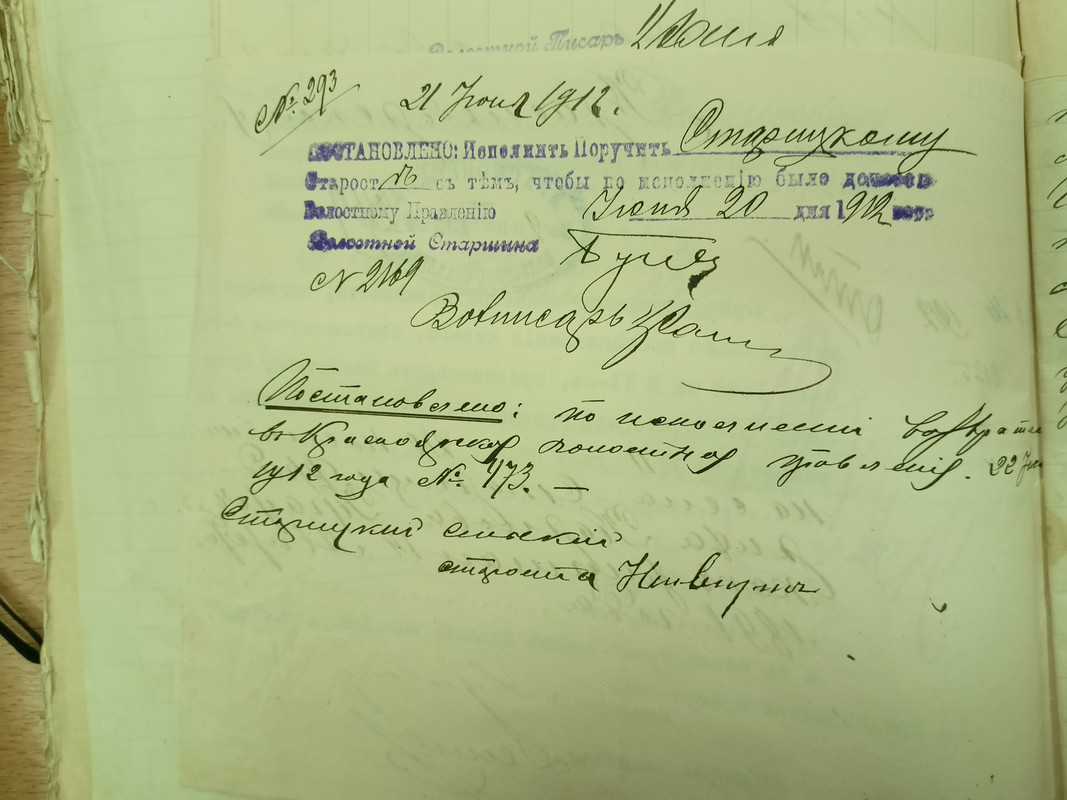 Волостной Писарь
№ 293
21 Июня 1912.
ПОСТАНОВЛЕНО: Исполнить Поручить Старицкому
Старостѣ съ тѣмъ, чтобы по исполненію было донесено
Волостному Правленію Июня 20 дня 1912 года
Волостной Старшина
№ 2169
Волписарь
Постановлено: по исполнении возврати
въ Красноярское волостное правление. 22 Июн
1912 года № 473. —
Старицкий сельский
староста